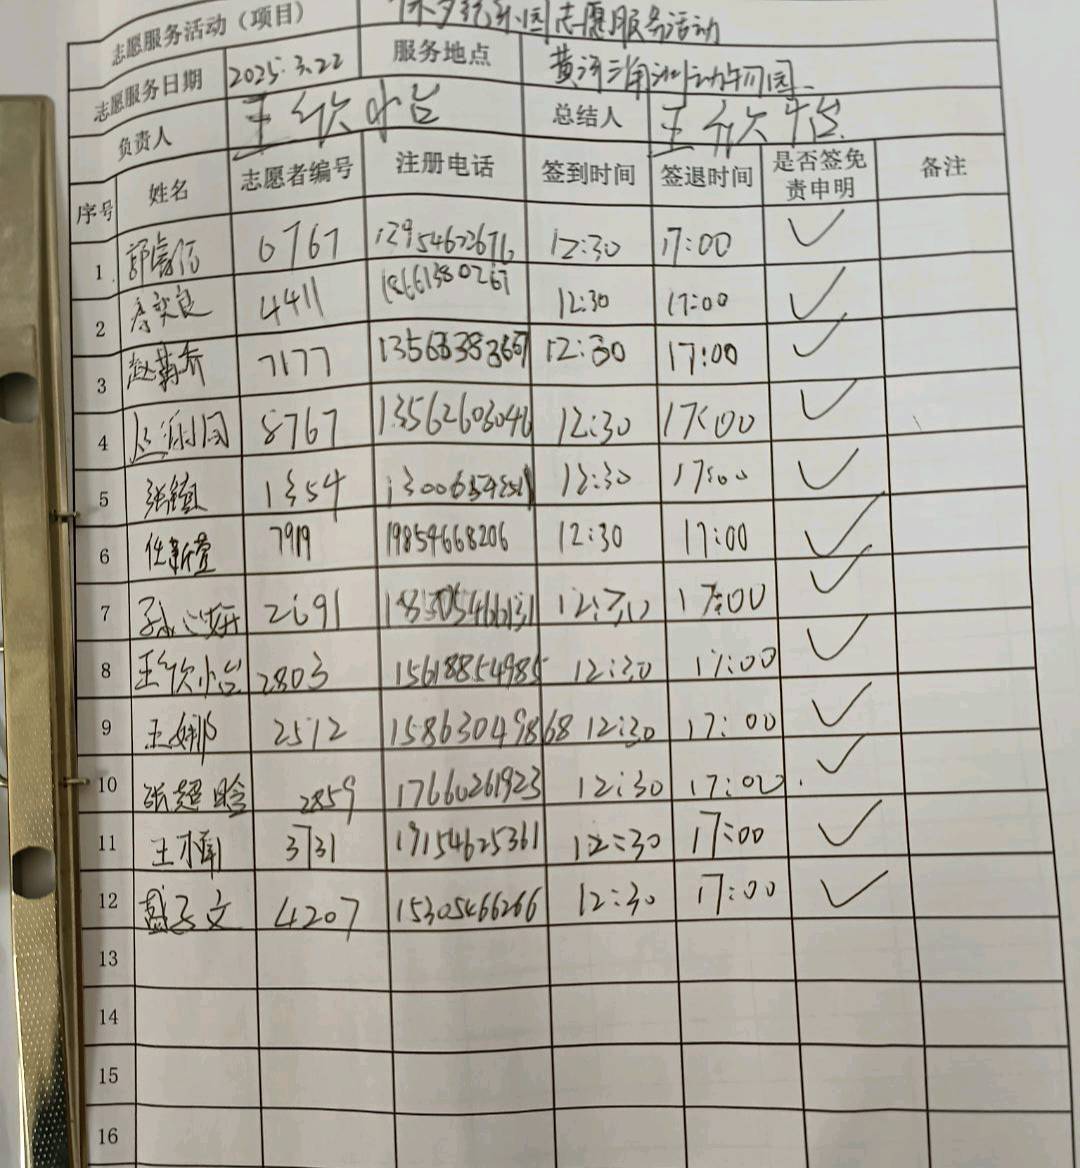 志愿服务活动（项目） 乐园志愿服务活动
志愿服务日期 2025.3.22 服务地点 黄河三角洲动物园
负责人 王欣怡 总结人 王欣怡
序号 姓名 志愿者编号 注册电话 签到时间 签退时间 是否签免责申明 备注
1 6767 12:30 17:00 ✓
2 4411 18661380267 12:30 17:00 ✓
3 7177 12:30 17:00 ✓
4 8767 12:30 17:00 ✓
5 张镇 1354 12:30 17:00 ✓
6 任新萱 7919 19854668206 12:30 17:00 ✓
7 2691 12:30 17:00 ✓
8 王欣怡 2803 15618854985 12:30 17:00 ✓
9 王娜 2512 15863049868 12:30 17:00 ✓
10 张超晗 2859 17660261923 12:30 17:00 ✓
11 王楠 3731 19154625361 12:30 17:00 ✓
12 子文 4207 15305466266 12:30 17:00 ✓
13
14
15
16